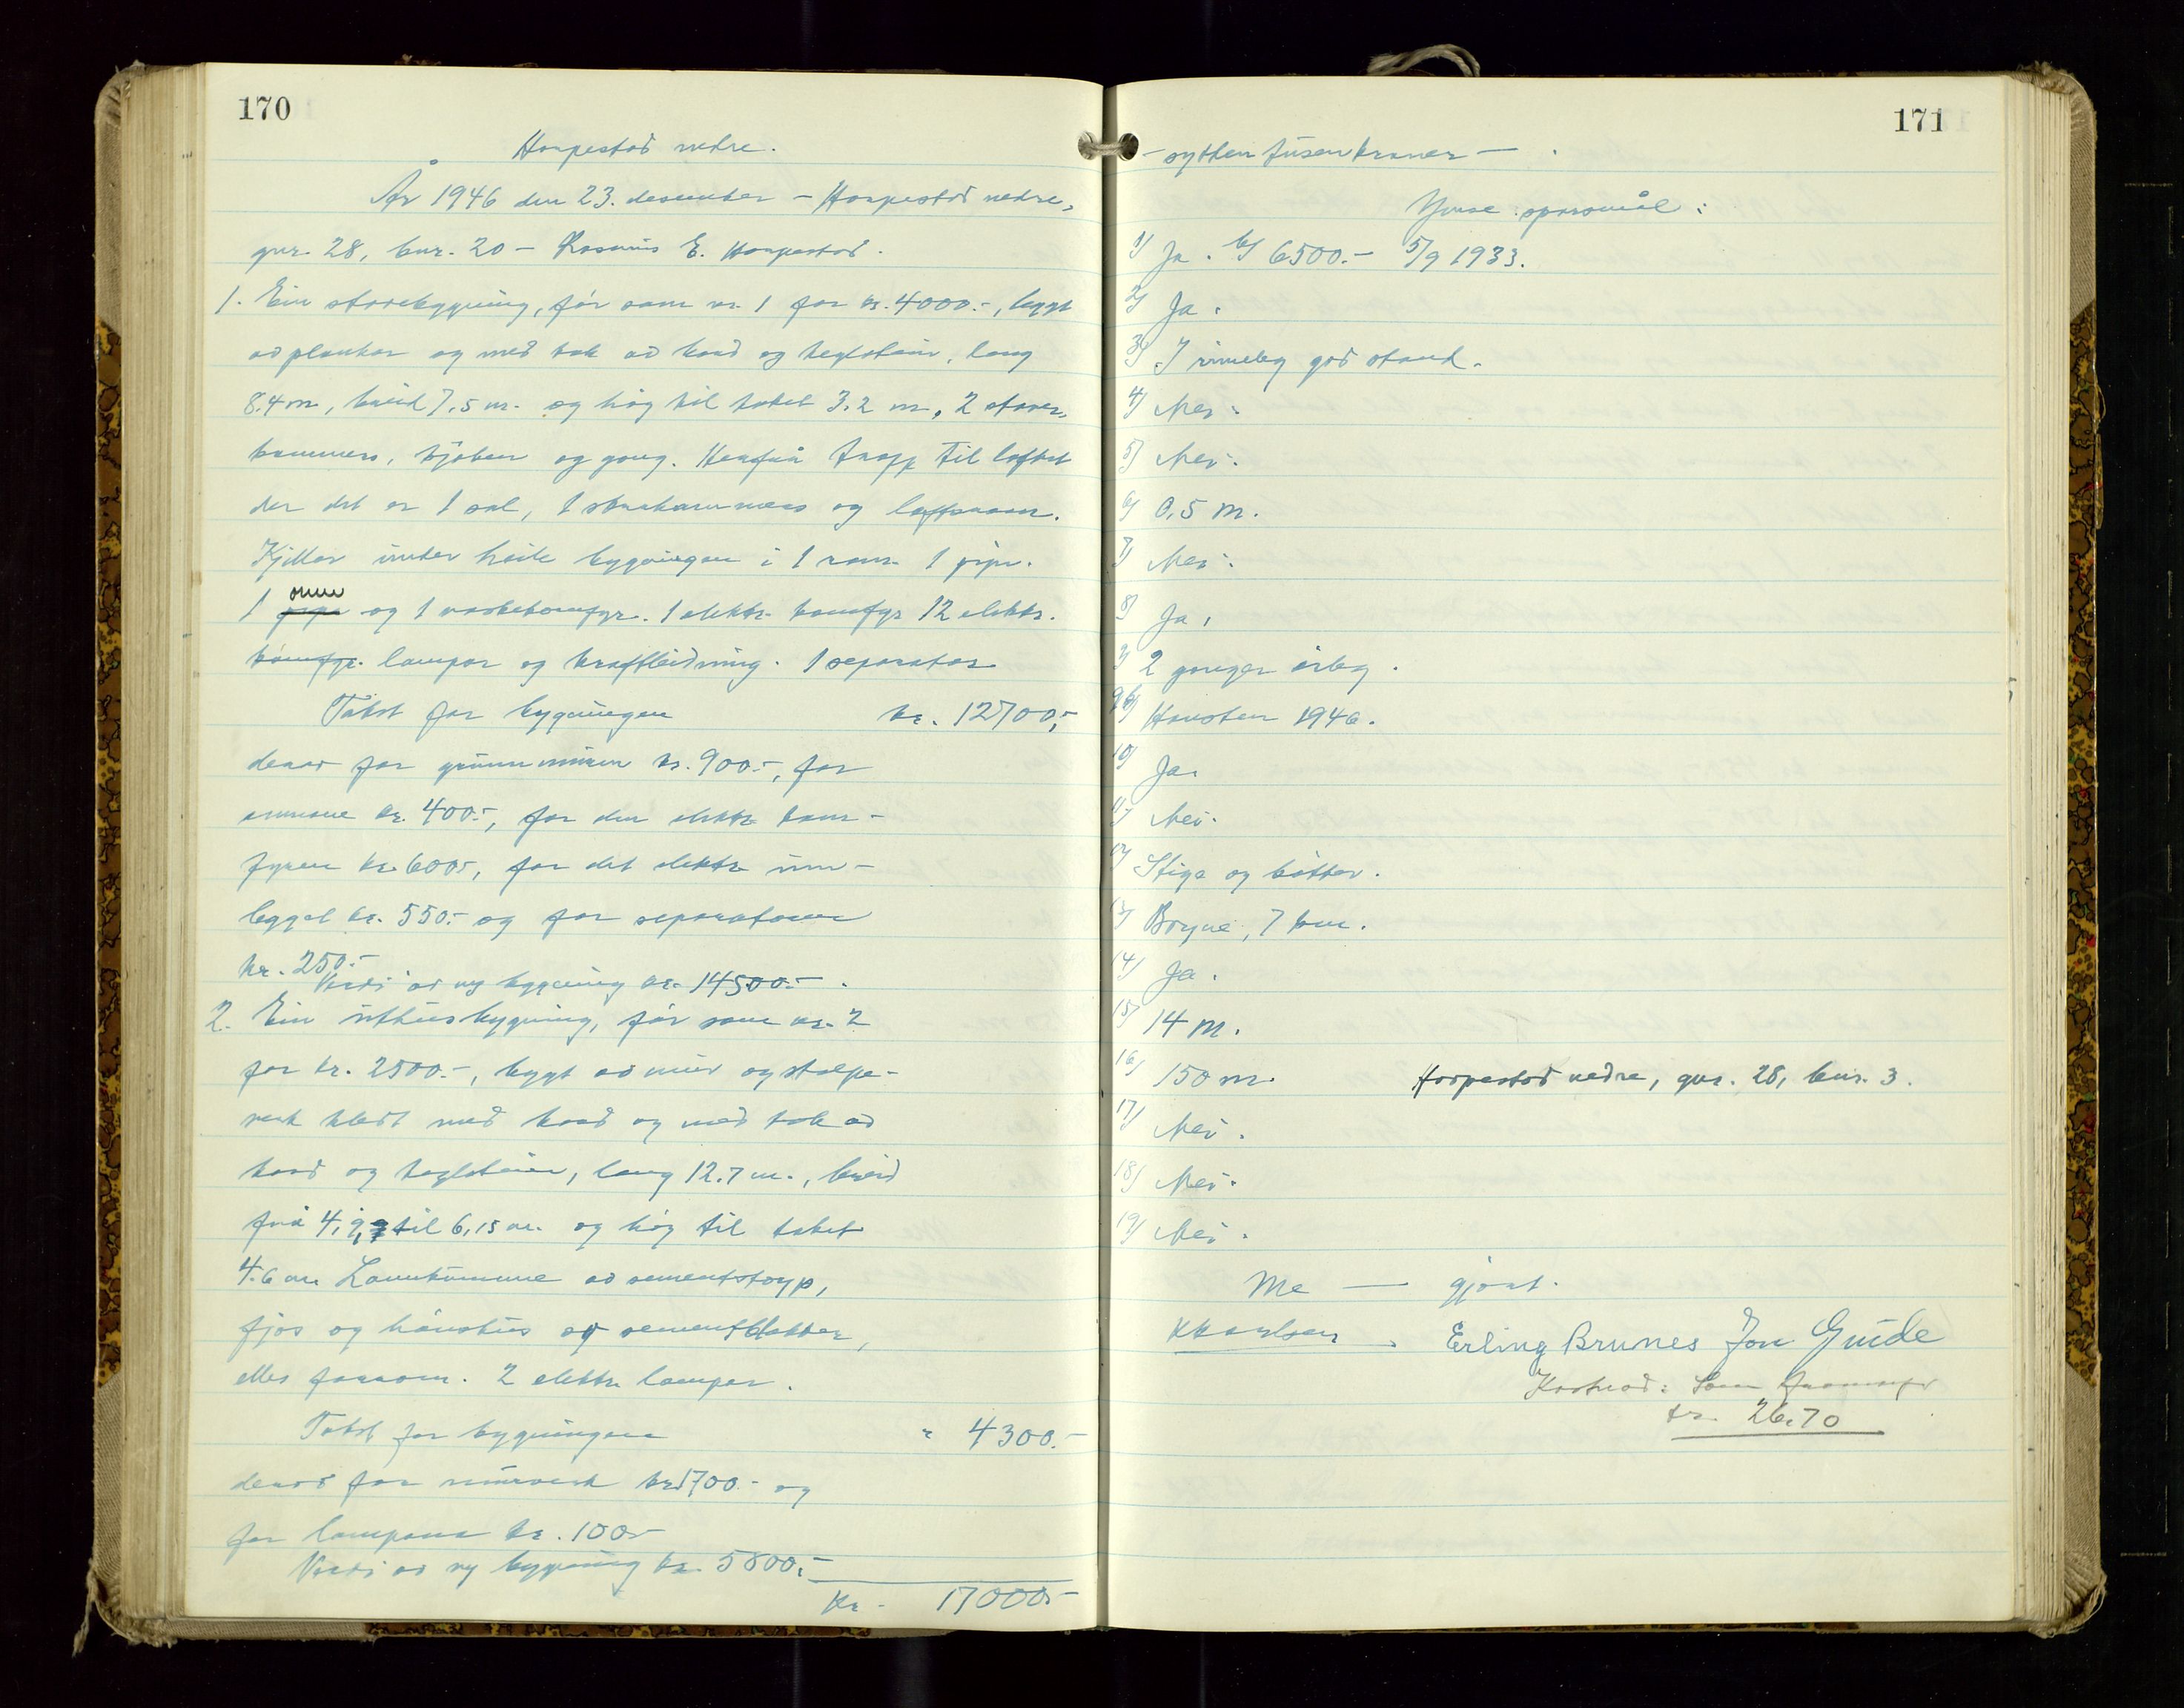 170
Horpestad nedre.
År 1946 den 23. desember – Horpestad nedre,
gnr. 28, bnr. 20 – Rasmus E. Horpestad.
1. Ein stovebygning, før som nr. 1 for kr. 4000.-, bygt
av plankar og med tak av bord og teglstein, lang
8.4 m, breid 7.5 m. og høg til taket 3.2 m. 2 stover,
kammers, kjøken og gang. Herfrå trapp til loftet
der det er 1 sal, 1 skråkammers og loftsrom.
Kjellar under heile bygningen i 1 rom. 1 pipe.
1 omn og 1 vaskekomfyr. 1 elektr. komfyr 12 elektr.
komfyr. lampor og kraftleidning. 1 separator
Takst for bygningen kr. 12700,-
derav for grunnmuren kr. 900.-, for
omnane kr. 400.-, for den elektr. kom-
fyren kr. 600.-, for det elektr. inn-
legget kr. 550.- og for separatoren
kr. 250.-
Verdi av ny bygning kr. 14500.-.
2. Ein uthusbygning, før som nr. 2
for kr. 2500.-, bygt av mur og stolpe-
verk kledt med bord og med tak av
bord og teglstein, lang 12.7 m., breid
frå 4,9 til 6,15 m. og høg til taket
4.6 m. Landkumme av sementstøyp,
fjos og hønsehus av sementblokker,
elles forrom. 2 elektr. lampor.
Takst for bygningen " 4300.-
derav for murverk kr. 1700.- og
for lampone kr. 100.-
Verdi av ny bygning kr. 5800.-
Kr. 17000.-
171
– sytten tusen kroner – .
Ymse spørsmål:
1) Ja. b) 6500.- 5/9 1933.
2) Ja.
3) I rimeleg god stand.
4) Nei.
5) Nei.
6) 0,5 m.
7) Nei.
8) Ja,
9) 2 gonger årleg.
9b) Hausten 1946.
10) Ja.
11) Nei.
12) Stige og bøtter.
13) Bryne, 7 km.
14) Ja.
15) 14 m.
16) 150 m. Horpestad nedre, gnr. 28, bnr. 3.
17) Nei.
18) Nei.
19) Nei.
Me — gjort.
K Karlsen Erling Brunes Jon Gude
Kostnad: Som
kr. 26.70